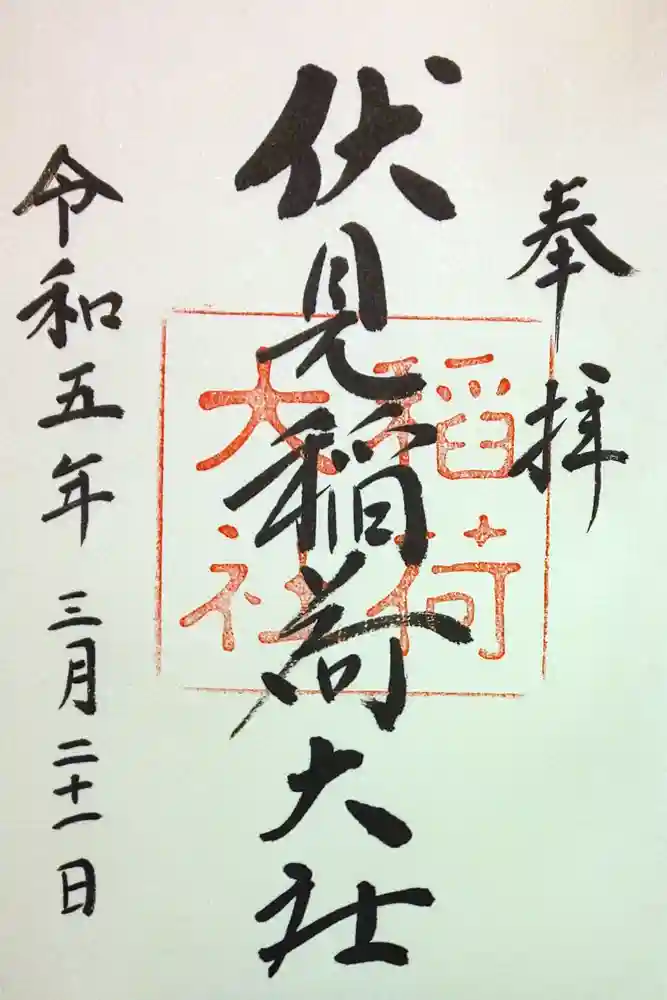 奉拝
伏見稲荷大社
稲荷
大社
令和五年三月二十一日